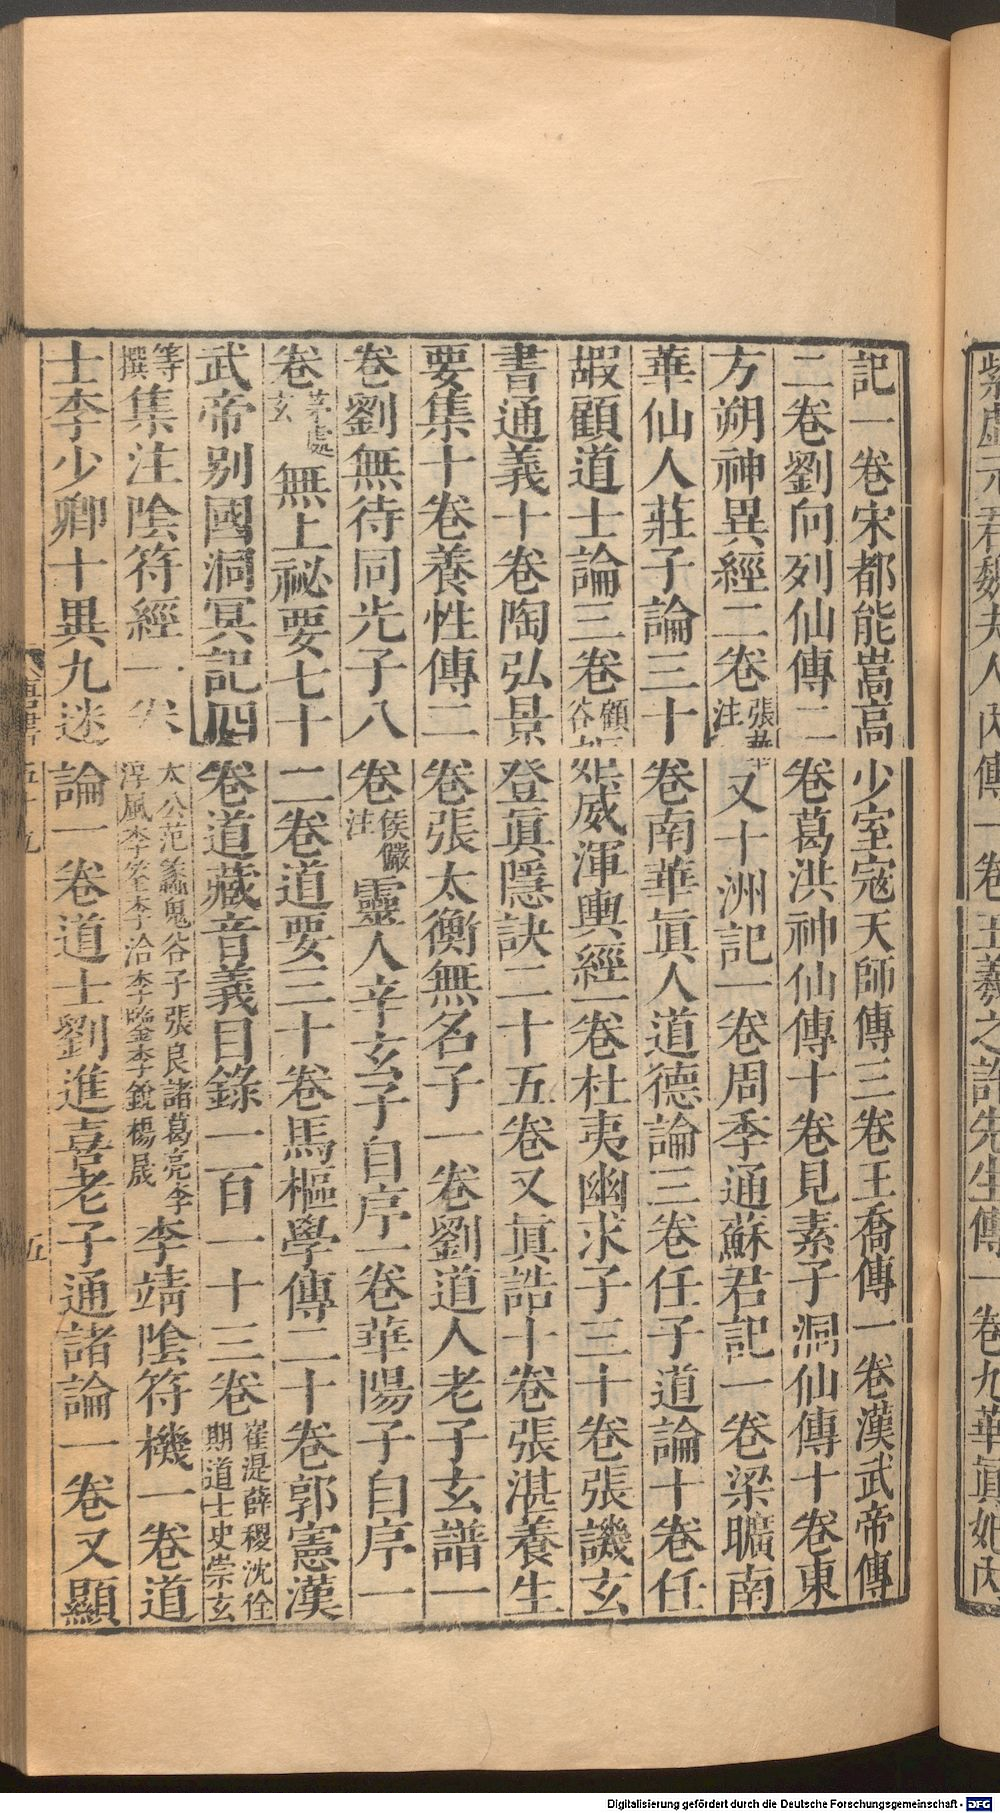 紫虛元君魏夫人內傳一卷王羲之許先生傳一卷九華眞妃內
記一卷宋都能嵩高少室寇天師傳三卷王喬傳一卷漢武帝傳
二卷劉向列仙傳二卷葛洪神仙傳十卷見素子洞仙傳十卷東
方朔神異經二卷張華注又十洲記一卷周季通蘇君記一卷梁曠南
華仙人莊子論三十卷南華眞人道德論三卷任子道論十卷任
嘏顧道士論三卷顧谷姚威渾輿經一卷杜夷幽求子三十卷張譏玄
書通義十卷陶弘景登眞隱訣二十五卷又眞誥十卷張湛養生
要集十卷養性傳二卷張太衡無名子一卷劉道人老子玄譜一
卷劉無待同光子八卷侯儼注靈人辛玄子自序一卷華陽子自序一
卷茅處玄無上祕要七十二卷道要三十卷馬樞學傳二十卷郭憲漢
武帝别國洞冥記四卷道藏音義目錄一百一十三卷崔湜薛稷沈佺期道士史崇玄
等撰集注陰符經一卷太公范蠡鬼谷子張良諸葛亮李淳風李筌李洽李鑒李銳楊晟李靖陰符機一卷道
士李少卿十異九迷論一卷道士劉進喜老子通諸論一卷又顯
唐書五十九
五
Digitalisierung gefördert durch die Deutsche Forschungsgemeinschaft - DFG